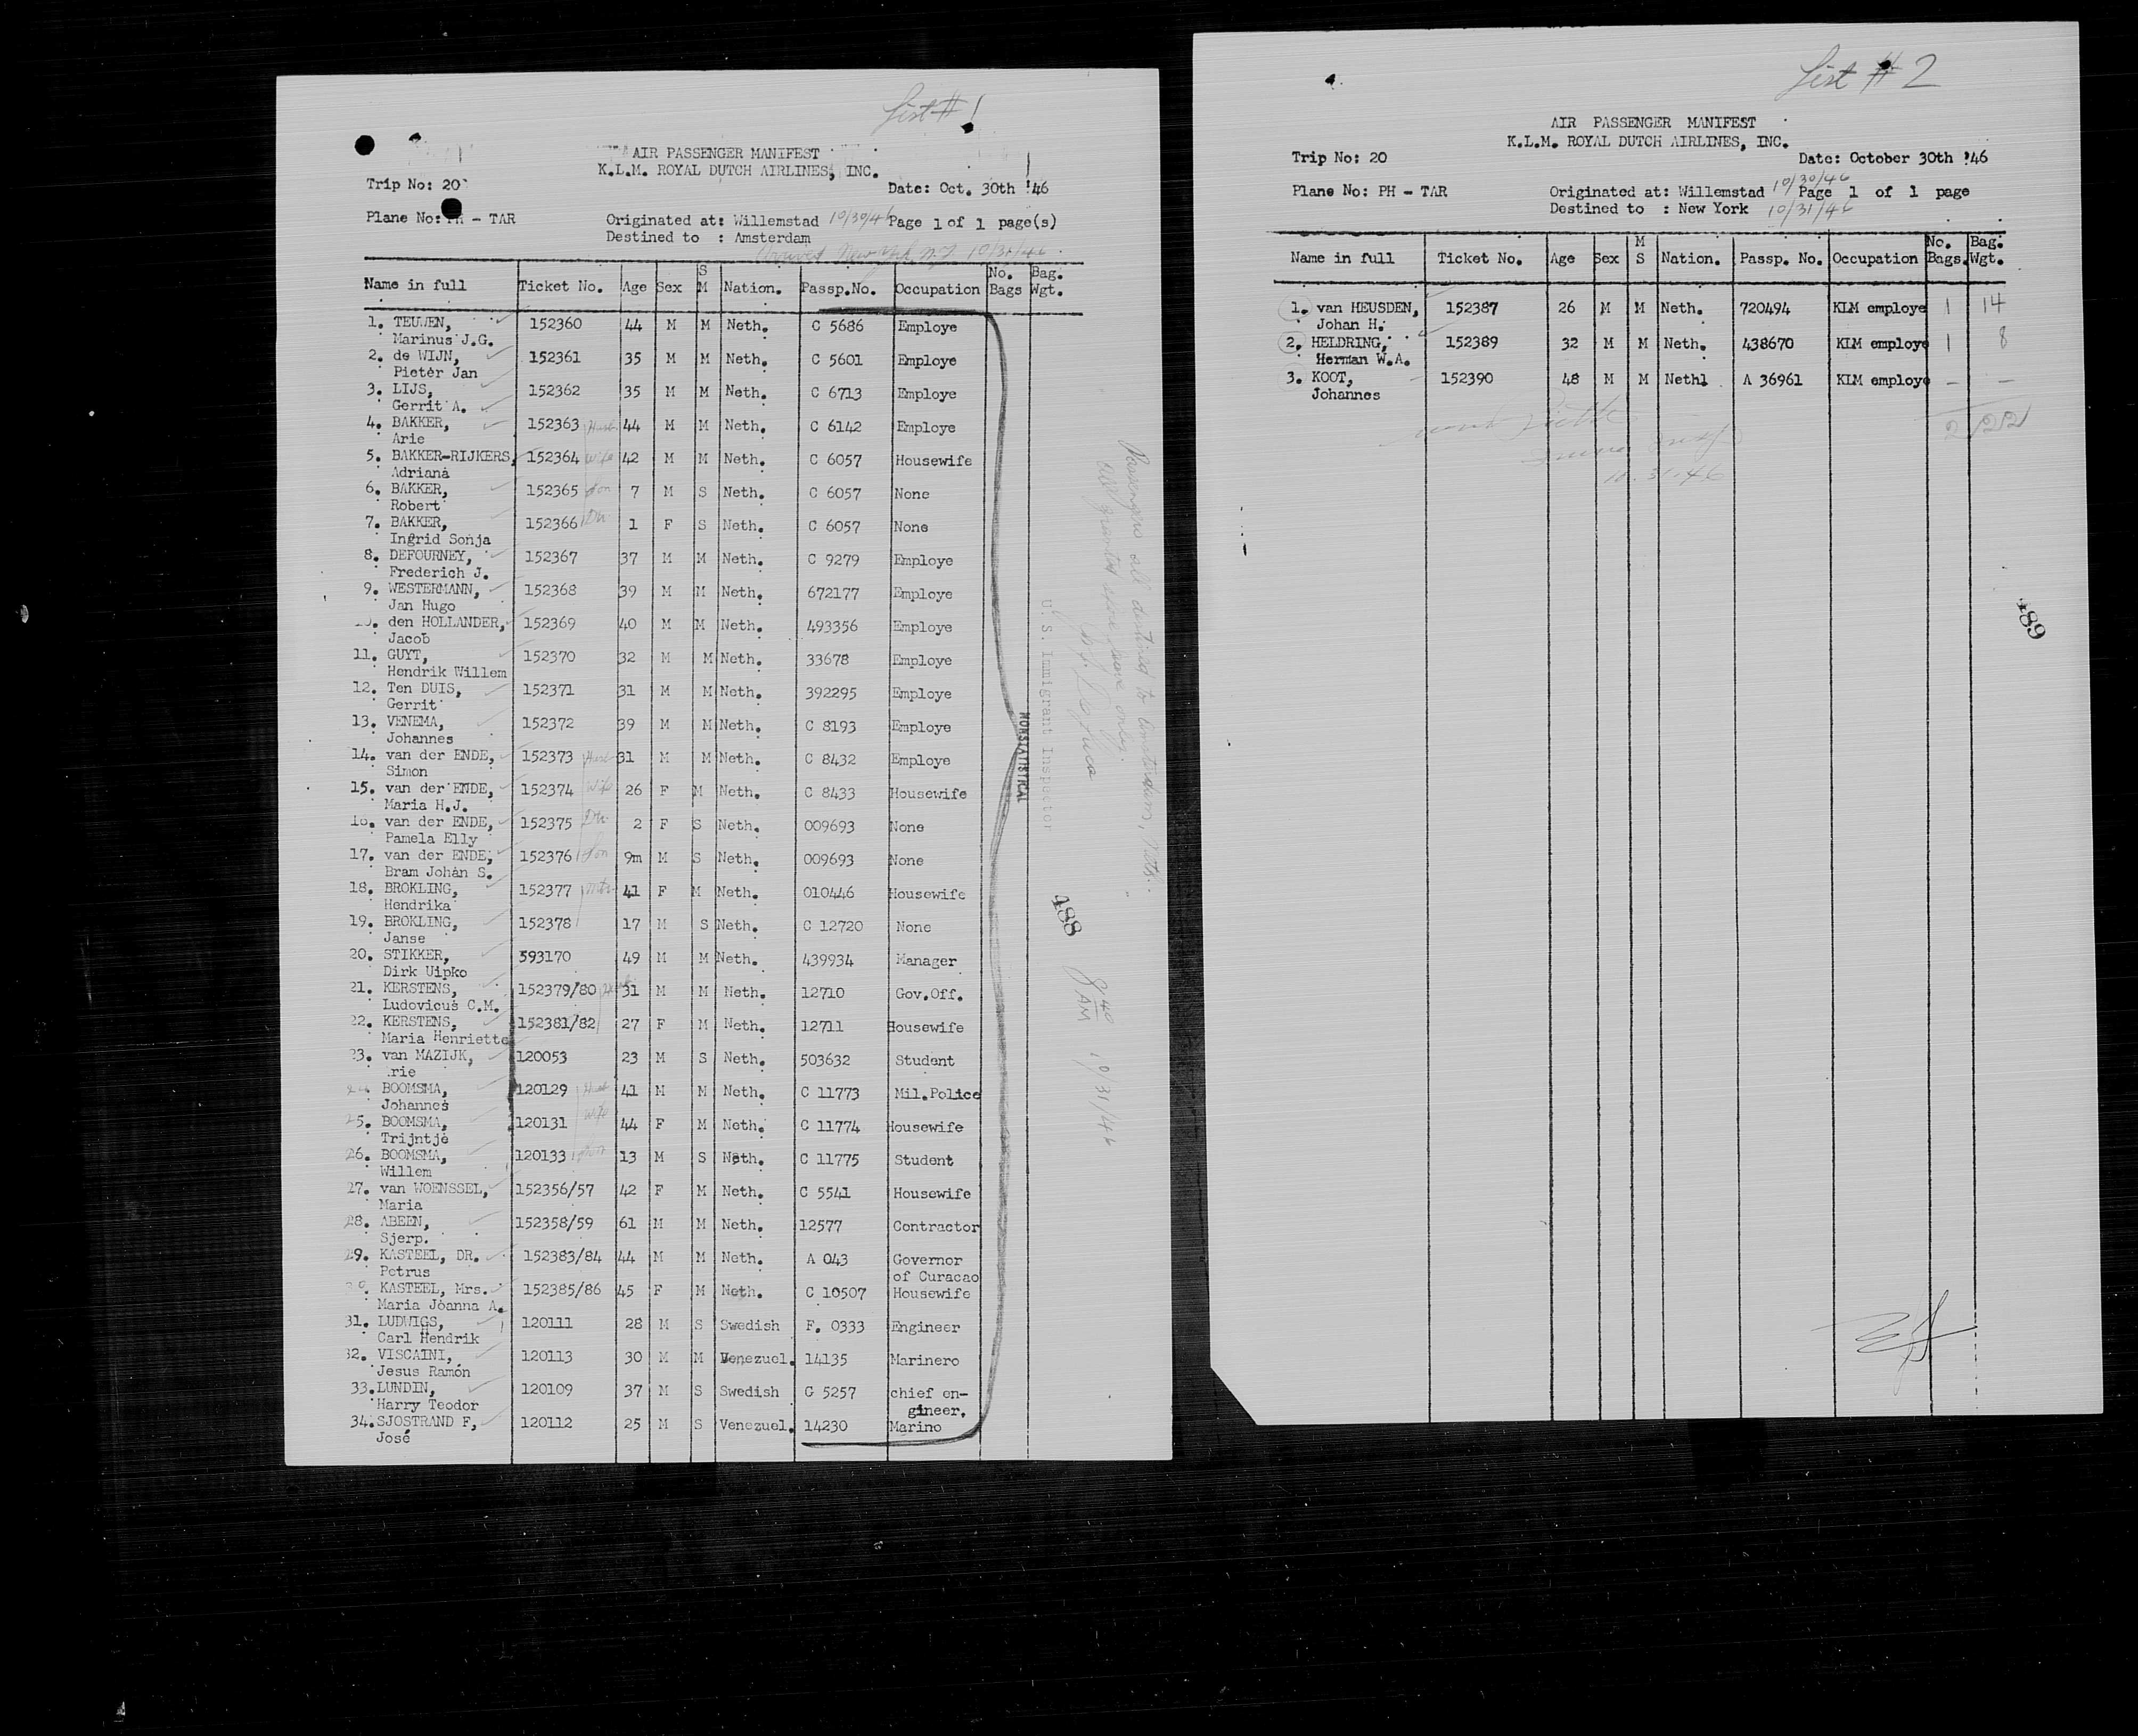 List # 1
AIR PASSENGER MANIFEST
K.L.M. ROYAL DUTCH AIRLINES, INC.
Trip No: 20
Date: Oct. 30th '46
Plane No: PH - TAR
Originated at: Willemstad 10/30/46 Page 1 of 1 page(s)
Destined to : Amsterdam
Arrived New York, N.Y. 10/31/46
Name in full Ticket No. Age Sex S M Nation. Passp.No. Occupation No. Bags Bag. Wgt.
1. TEUWEN, 152360 44 M M Neth. C 5686 Employe
Marinus J.G.
2. de WIJN, 152361 35 M M Neth. C 5601 Employe
Pieter Jan
3. LIJS, 152362 35 M M Neth. C 6713 Employe
Gerrit A.
4. BAKKER, 152363 Husb 44 M M Neth. C 6142 Employe
Arie
5. BAKKER-RIJKERS, 152364 wife 42 M M Neth. C 6057 Housewife
Adriana
6. BAKKER, 152365 son 7 M S Neth. C 6057 None
Robert
7. BAKKER, 152366 Dtr 1 F S Neth. C 6057 None
Ingrid Sonja
8. DEFOURNEY, 152367 37 M M Neth. C 9279 Employe
Frederich J.
9. WESTERMANN, 152368 39 M M Neth. 672177 Employe
Jan Hugo
den HOLLANDER, 152369 40 M M Neth. 493356 Employe
Jacob
11. GUYT, 152370 32 M M Neth. 33678 Employe
Hendrik Willem
12. Ten DUIS, 152371 31 M M Neth. 392295 Employe
Gerrit
13. VENEMA, 152372 39 M M Neth. C 8193 Employe
Johannes
14. van der ENDE, 152373 Husb 31 M M Neth. C 8432 Employe
Simon
15. van der ENDE, 152374 wife 26 F M Neth. C 8433 Housewife
Maria H.J.
16. van der ENDE, 152375 Dtr 2 F S Neth. 009693 None
Pamela Elly
17. van der ENDE, 152376 son 9m M S Neth. 009693 None
Bram Johan S.
18. BROKLING, 152377 mtr 41 F M Neth. 010446 Housewife
Hendrika
19. BROKLING, 152378 17 M S Neth. C 12720 None
Janse
20. STIKKER, 393170 49 M M Neth. 439934 Manager
Dirk Uipko
21. KERSTENS, 152379/80 31 M M Neth. 12710 Gov.Off.
Ludovicus C.M.
22. KERSTENS, 152381/82 27 F M Neth. 12711 Housewife
Maria Henriette
23. van MAZIJK, 120053 23 M S Neth. 503632 Student
rie
24 BOOMSMA, 120129 Husb 41 M M Neth. C 11773 Mil.Police
Johannes
25. BOOMSMA, 120131 wife 44 F M Neth. C 11774 Housewife
Trijntje
26. BOOMSMA, 120133 son 13 M S Neth. C 11775 Student
Willem
27. van WOENSSEL, 152356/57 42 F M Neth. C 5541 Housewife
Maria
28. ABEEN, 152358/59 61 M M Neth. 12577 Contractor
Sjerp.
29. KASTEEL, DR. 152383/84 44 M M Neth. A 043 Governor
Petrus of Curacao
30. KASTEEL, Mrs. 152385/86 45 F M Neth. C 10507 Housewife
Maria Joanna A.
31. LUDWIGS, 120111 28 M S Swedish F. 0333 Engineer
Carl Hendrik
32. VISCAINI, 120113 30 M M Venezuel. 14135 Marinero
Jesus Ramón
33. LUNDIN, 120109 37 M S Swedish G 5257 chief en-
Harry Teodor gineer.
34. SJOSTRAND F, 120112 25 M S Venezuel. 14230 Marino
José
Passengers all destined to Amsterdam, Neth.
U.S. Immigrant Inspector
NONSTATISTICAL
488
8 40 AM 10/31/46
List # 2
AIR PASSENGER MANIFEST
K.L.M. ROYAL DUTCH AIRLINES, INC.
Trip No: 20
Date: October 30th '46
Plane No: PH - TAR
Originated at: Willemstad 10/30/46 Page 1 of 1 page
Destined to : New York 10/31/46
Name in full Ticket No. Age Sex M S Nation. Passp. No. Occupation No. Bags. Bag. Wgt.
1. van HEUSDEN, 152387 26 M M Neth. 720494 KLM employe 1 14
Johan H.
2. HELDRING, 152389 32 M M Neth. 438670 KLM employe 1 8
Herman W.A.
3. KOOT, 152390 48 M M Nethl A 36961 KLM employe — —
Johannes
2 22
10.31.46
489